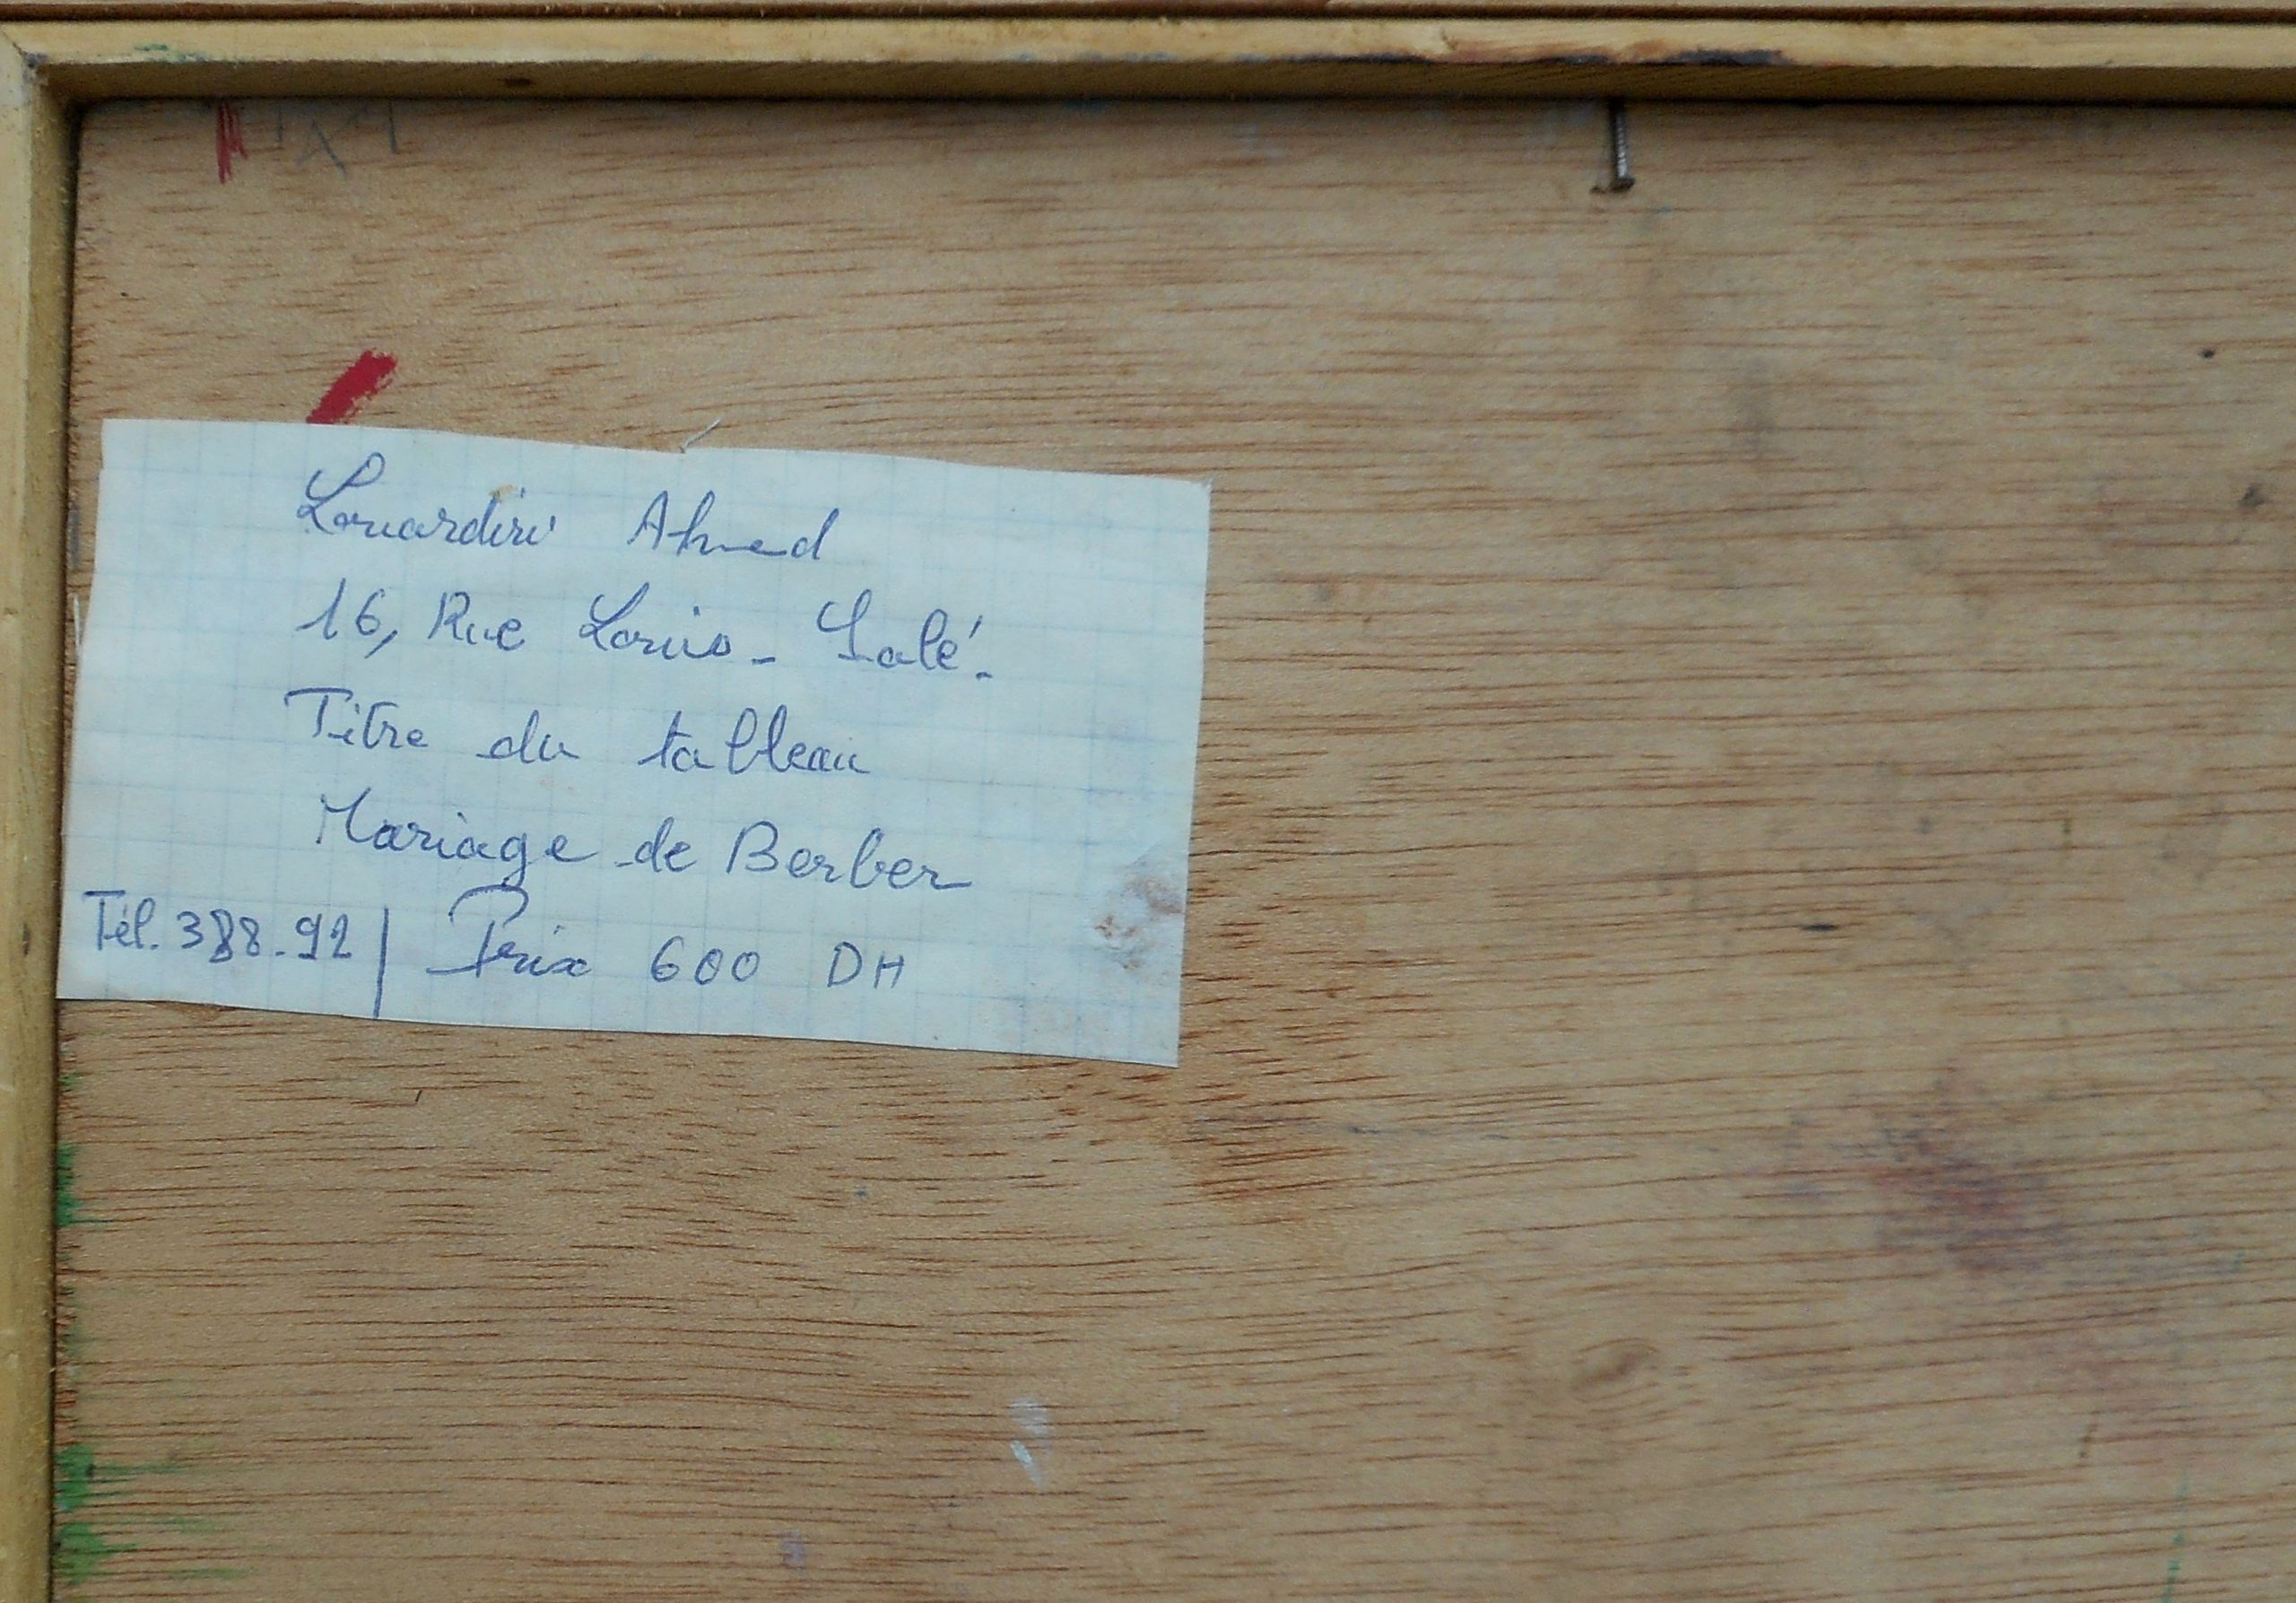 Louardiri Ahmed
16, Rue Louis - Salé.
Titre du tableau
Mariage de Berber
Tél. 388-92 | Prix 600 DH